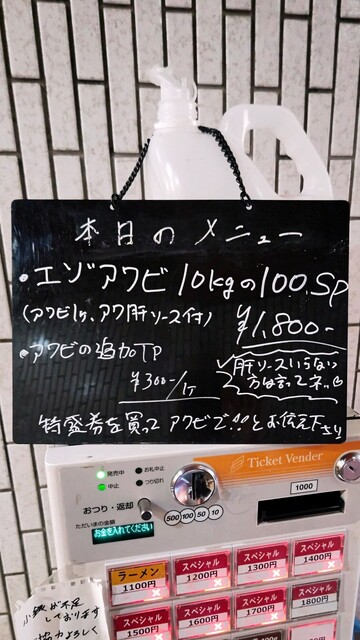 本日のメニュー
・エゾアワビ10kgの100.SP
(アワビ1ヶ、アワ肝ソース付) ¥1,800-
・アワビの追加TP
¥300-/1ヶ
肝ソースいらない
方は言ってネ
特盛券を買って アワビで!!とお伝え下さい
Ticket Vender
発売中
お札中止
中止
つり切れ
おつり・返却
ただいまの金額
お金を入れてください
500 100 50 10
1000
ラーメン
1100円
スペシャル
1200円
スペシャル
1300円
スペシャル
1400円
スペシャル
1500円
スペシャル
1600円
スペシャル
1700円
スペシャル
1800円
小銭が不足
しております
協力よろしく